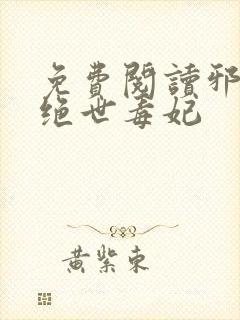 免費閱讀邪
绝世毒妃
黄紫東